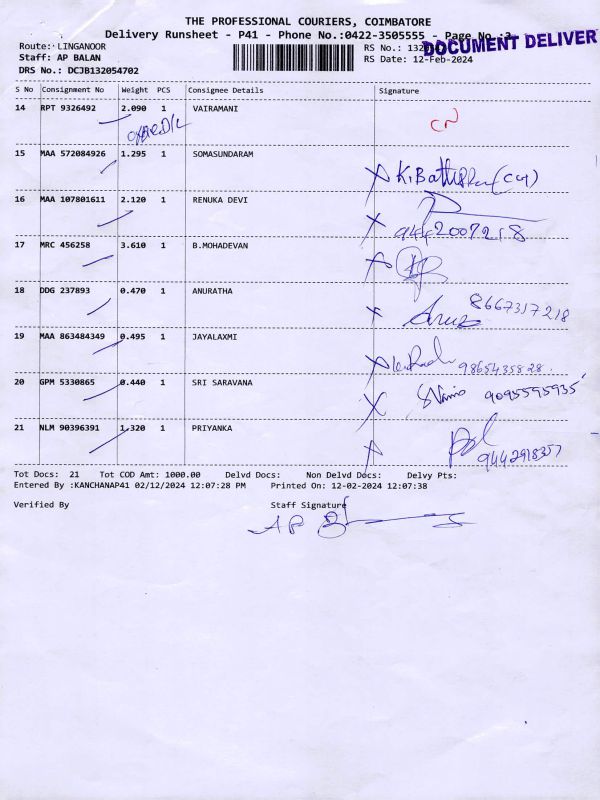 THE PROFESSIONAL COURIERS, COIMBATORE
Delivery Runsheet - P41 - Phone No.:0422-3505555 - Page No.:3
DOCUMENT DELIVER
Route: LINGANOOR
RS No.: 1320
Staff: AP BALAN
RS Date: 12-Feb-2024
DRS No.: DCJB132054702
S No Consignment No Weight PCS Consignee Details Signature
14 RPT 9326492 2.090 1 VAIRAMANI
CN
15 MAA 572084926 1.295 1 SOMASUNDARAM
16 MAA 107801611 2.120 1 RENUKA DEVI
9442007218
17 MRC 456258 3.610 1 B.MOHADEVAN
18 DDG 237893 0.470 1 ANURATHA
8667317218
19 MAA 863484349 0.495 1 JAYALAXMI
9865435828
20 GPM 5330865 0.440 1 SRI SARAVANA
9095595935
21 NLM 90396391 1.320 1 PRIYANKA
9442918357
Tot Docs: 21 Tot COD Amt: 1000.00 Delvd Docs: Non Delvd Docs: Delvy Pts:
Entered By :KANCHANAP41 02/12/2024 12:07:28 PM Printed On: 12-02-2024 12:07:38
Verified By Staff Signature
AP